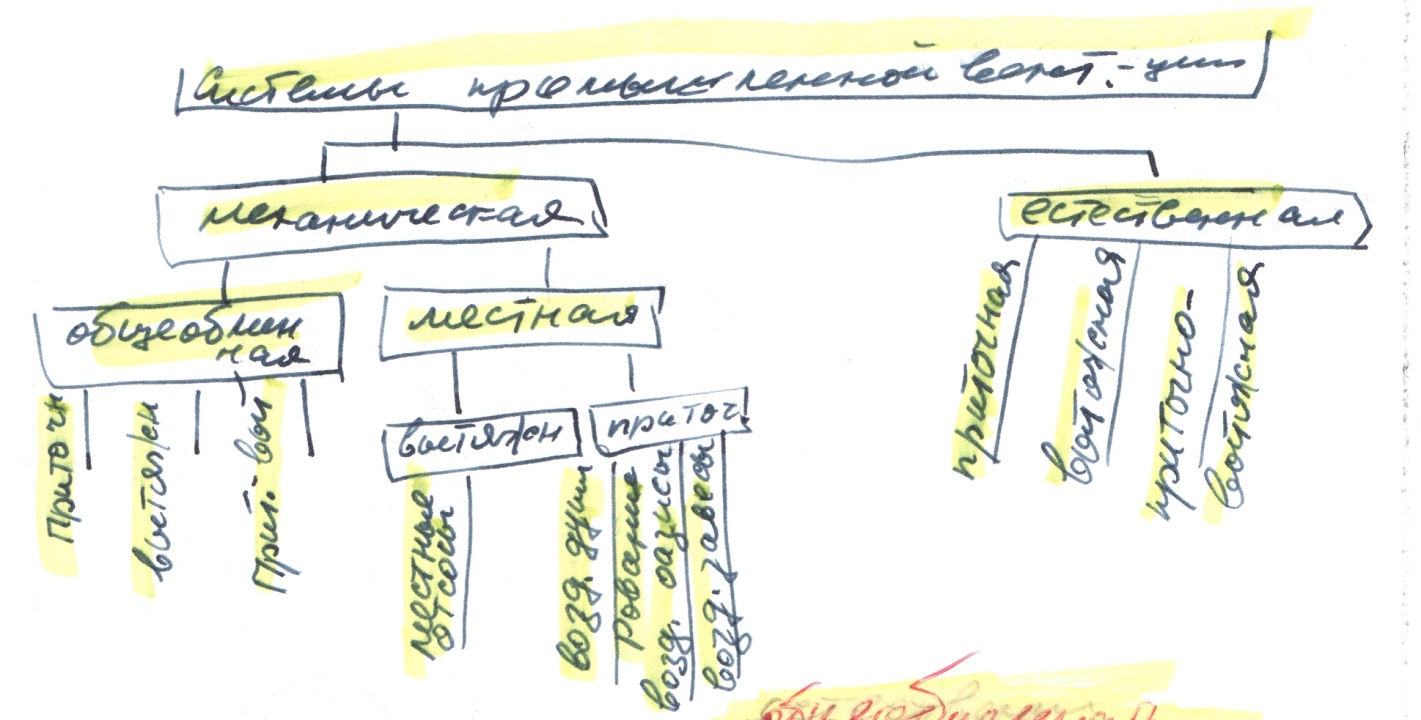 Системы промышленной вент.-ции
механическая
естественная
общеобмен
ная
местная
приточн
вытяжн
Прит. выт
вытяжн
приточ.
местные
отсосы
возд. души
рование
возд. оазисы
возд. завесы
приточная
вытяжная
приточно-
вытяжная
общеобменная